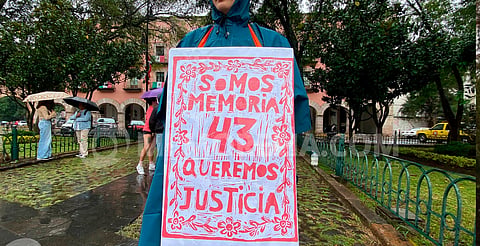 SOMOS
MEMORIA
43
QUEREMOS
JUSTICIA